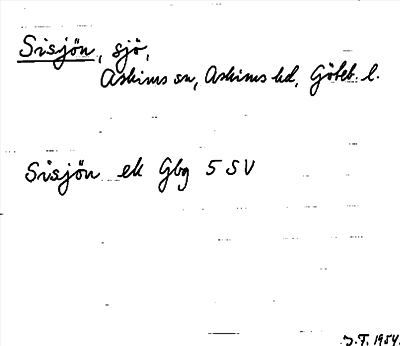 Sisjön, sjö,
Askims sn, Askims hd, Göteb. l.
Sisjön ek Gbg 5 SV
J.T. 1954.